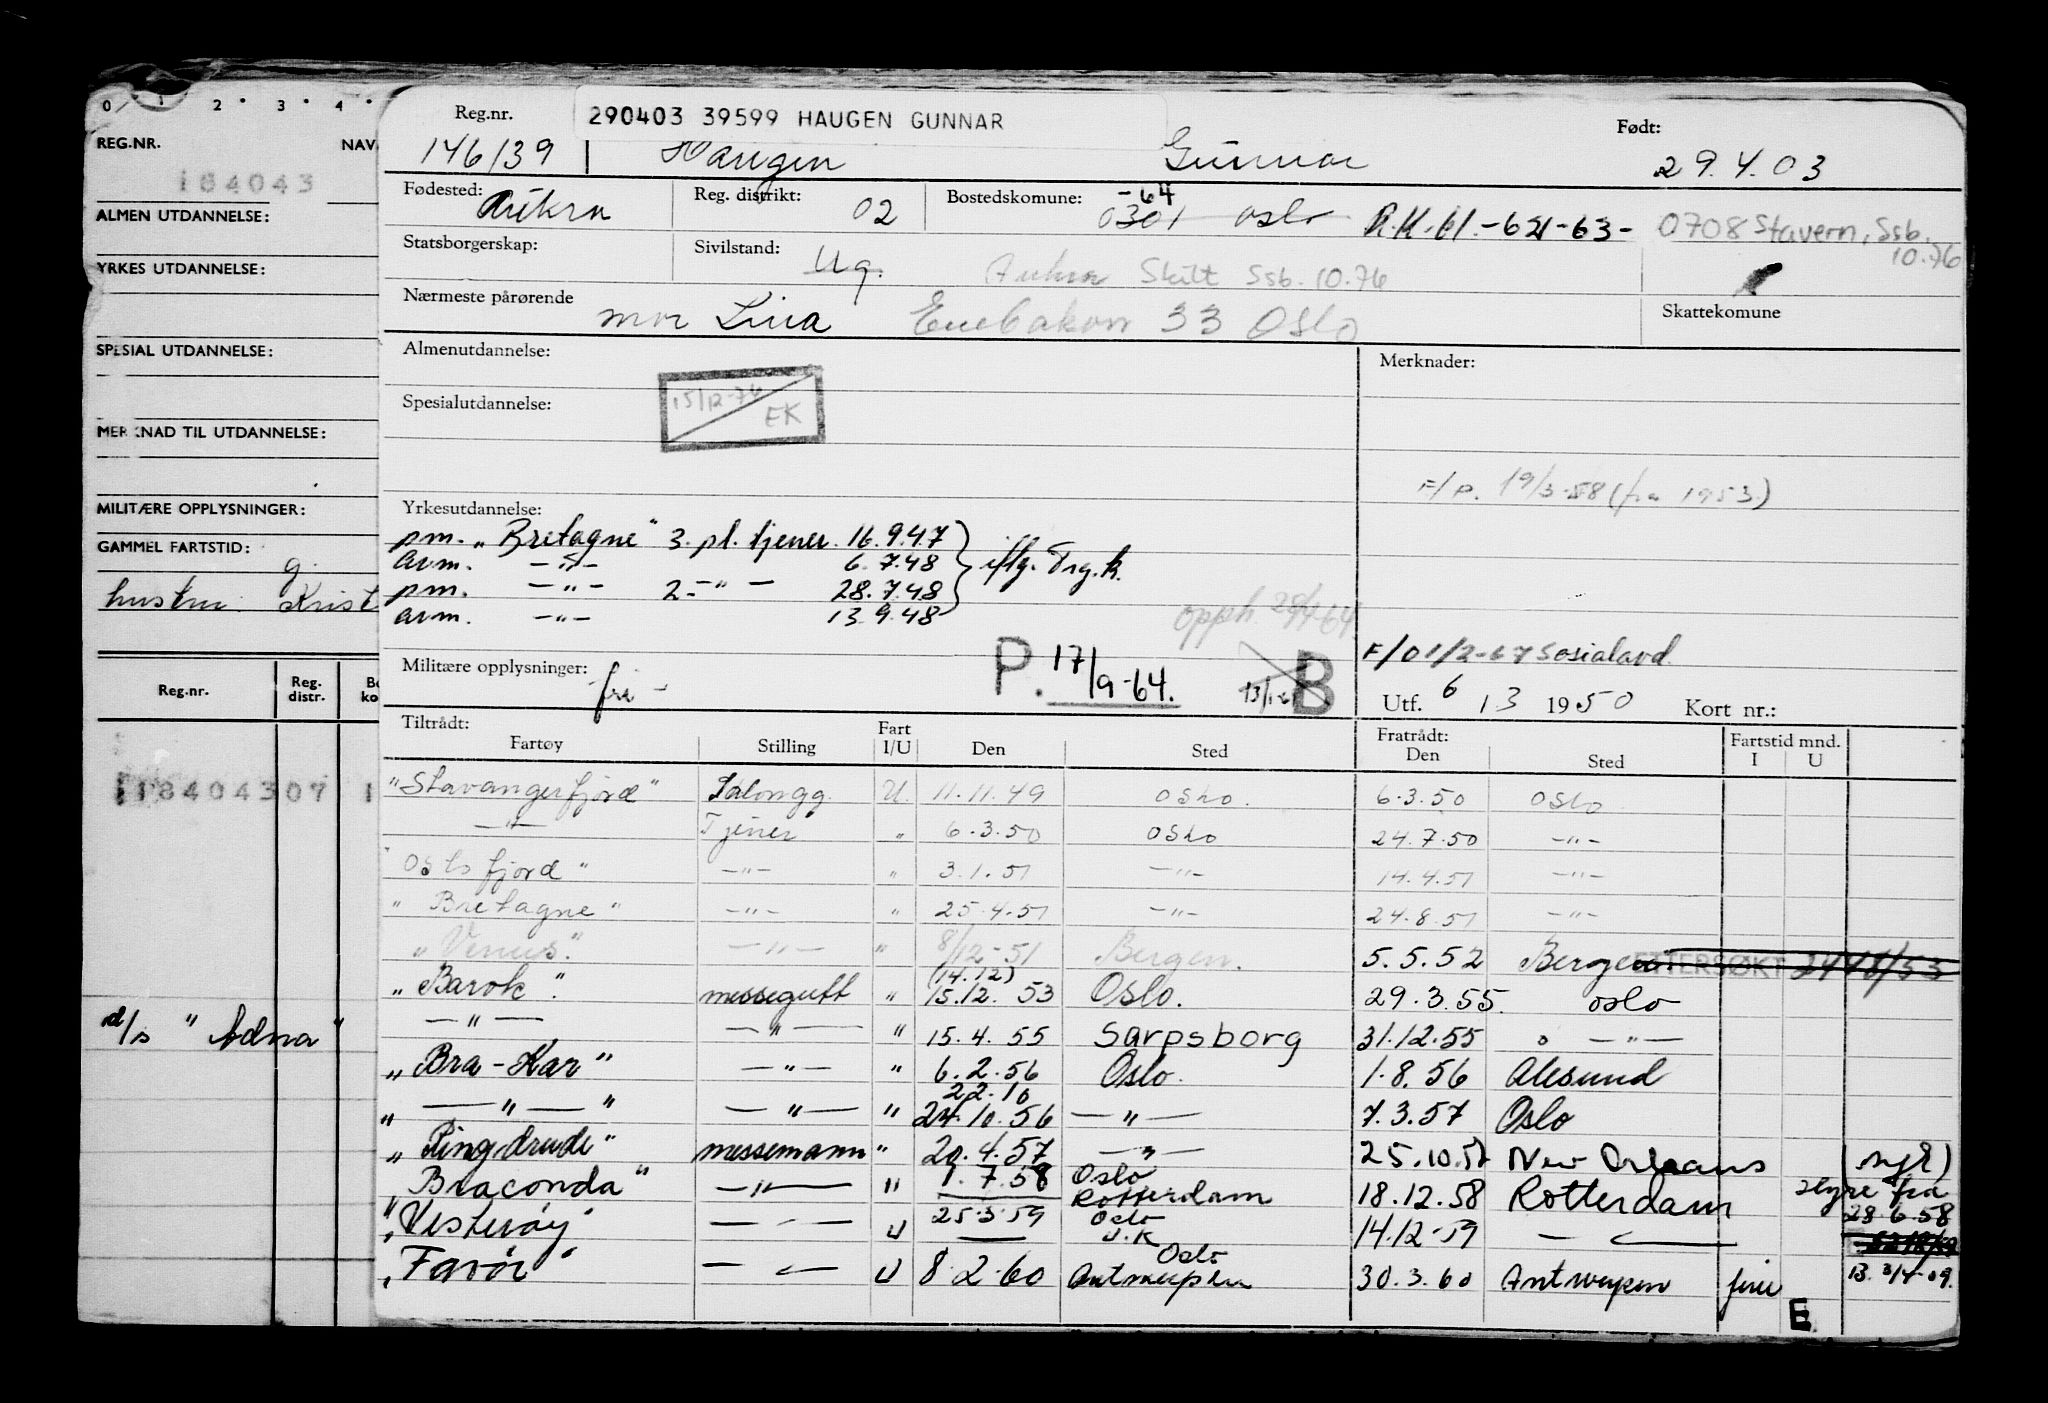 0 1 2 3 4
REG.NR.
NAV
184043
ALMEN UTDANNELSE:
YRKES UTDANNELSE:
SPESIAL UTDANNELSE:
MERKNAD TIL UTDANNELSE:
MILITÆRE OPPLYSNINGER:
GAMMEL FARTSTID:
g.
hustru: Krist
Reg.nr. Reg. distr. Bo ko
118404307 1
d/s "Adna"
Reg.nr. 290403 39599 HAUGEN GUNNAR Født:
146/39 Haugen Gunnar 29.4.03
Fødested: Aukra Reg. distrikt: 02 Bostedskommune: -64 0301 Oslo R.K.61.-621-63- 0708 Stavern, Ssb. 10.76
Statsborgerskap: Sivilstand: Ug. Aukra Skilt Ssb. 10.76
Nærmeste pårørende mor Lina Enebakvn 33 Oslo Skattekomune
Almenutdannelse: Merknader:
Spesialutdannelse: 15/12-76 EK
F/p. 19/3-58 (fra 1953)
Yrkesutdannelse:
pm. "Bretagne" 3. pl. tjener. 16.9.47
avm. -"- 6.7.48 iflg. Trg.k.
pm. -"- 2 -"- 28.7.48
avm. -"- 13.9.48
opph.
F/O 1/2-67 Sosialavd.
Militære opplysninger: fri - P. 17/9-64. B
Utf. 6 / 3 1950 Kort nr.:
Tiltrådt: Fart Fratrådt: Fartstid mnd.
Fartøy Stilling I/U Den Sted Den Sted I U
"Stavangerfjord" Salongg. U. 11.11.49 Oslo. 6.3.50 Oslo
-"- Tjener " 6.3.50 Oslo 24.7.50 -"-
"Oslofjord" -"- " 3.1.51 -"- 14.4.51 -"-
"Bretagne" -"- " 25.4.51 -"- 24.8.51 -"-
"Venus." -"- " 8/12-51 Bergen. 5.5.52 Bergen. ETTERSØKT 2448/53
"Barok". messegutt " (14.12) 15.12. 53 Oslo. 29.3.55. Oslo
-"- -"- " 15.4.55 Sarpsborg 31.12.55 -"-
"Bra-Kar" -"- " 6.2.56 Oslo. 1.8.56 Ålesund
" -"- " -"- " 22.10 24.10.56 -"- 7.3.57 Oslo
"Ringdrude" messemann " 20.4.57 -"- 25.10.57 New Orleans (syk)
"Braconda" -"- " 1.7.58 Oslo Rotterdam 18.12.58 Rotterdam Hyre fra 28.6.58
"Vesterøy" -"- U 25.3.59 Oslo U.K 14.12-59 -"-
"Farör" -"- U 8.2.60 Oslo Antwerpen 30.3.60 Antwerpen
E